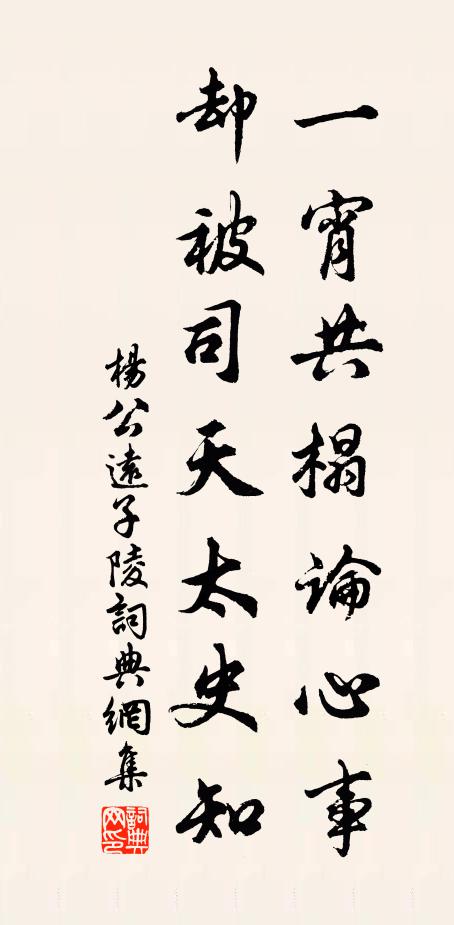 一宵共榻論心事
却被司天太史知
楊公遠子陵詞典網集
詞典網印